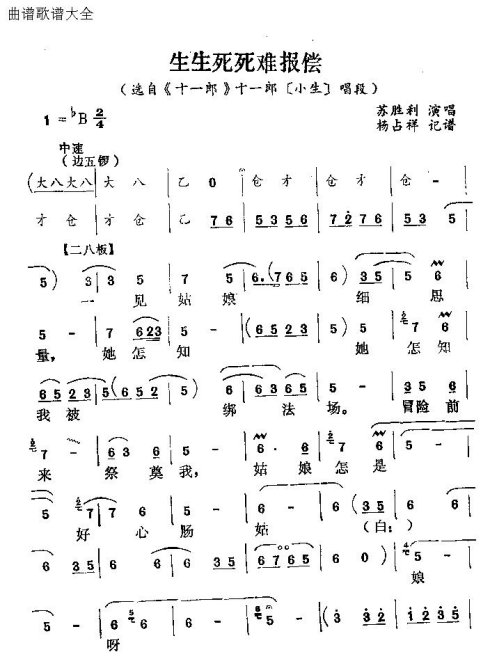 曲谱歌谱大全
生生死死难报偿
（选自《十一郎》十一郎〔小生〕唱段）
1 = ♭B 2/4
苏胜利 演唱
杨占祥 记谱
中速
（边五锣）
(大八大八 | 大 八 | 乙 0 | 仓 才 | 仓 才 | 仓 - |
才 仓 | 才 仓 | 乙 7 6 | 5 3 5 6 | 7 2 7 6 | 5 3 5 |
【二八板】
5 ) 3 | 3 5 | 7 5 | 6. (7 6 5 | 6 ) 3 5 | 5 6 |
一 见 姑 娘 细 思
5 - | 7 6 2 3 | 5 - | (6 5 2 3 | 5 ) 5 | 7 6 |
量， 她 怎 知 她 怎 知
6 5 2 3 | 5 (6 5 2 | 5 ) 6 | 6 3 6 5 | 5 - | 3 5 6 |
我 被 绑 法 场。 冒险 前
7 - | 6 3 6 | 5 5 | 6 · 6 | 7 7 | 5 - |
来 祭 奠 我， 姑 娘 怎 是
5 | 7 7 6 | 5 - | 6 - | 6 (3 5 | 6 6 |
好 心 肠 姑 （白：）
6 3 5 | 6 6 | 6 3 5 | 6 7 6 5 | 6 0 ) | 5 - |
娘
5 - | 6 - | 6 - | 6 (3 | 3 3 2 | 3 3 |
呀